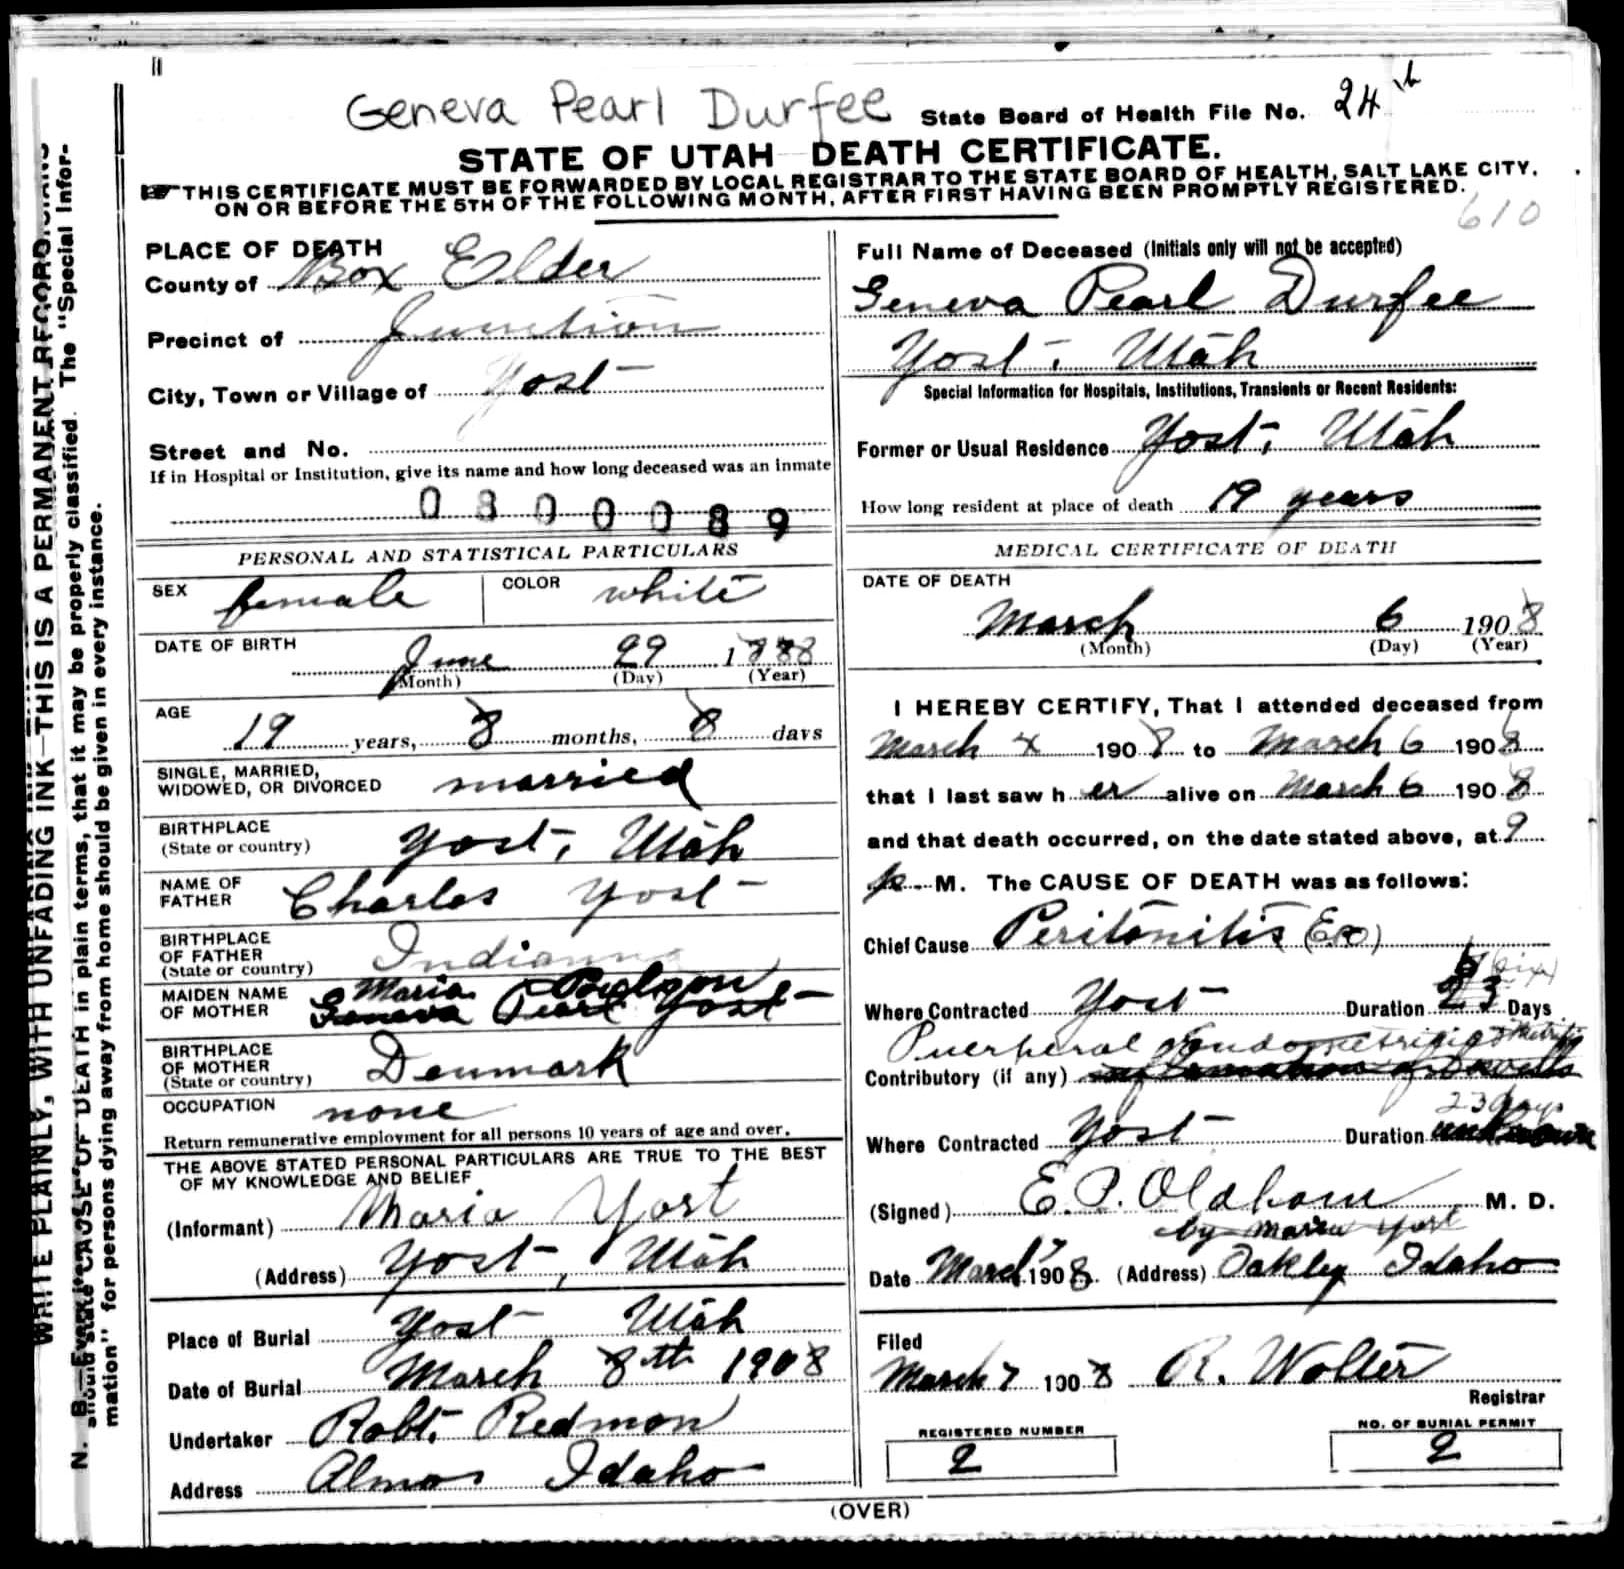 Geneva Pearl Durfee State Board of Health File No. 24
STATE OF UTAH DEATH CERTIFICATE.
THIS CERTIFICATE MUST BE FORWARDED BY LOCAL REGISTRAR TO THE STATE BOARD OF HEALTH, SALT LAKE CITY,
ON OR BEFORE THE 5TH OF THE FOLLOWING MONTH, AFTER FIRST HAVING BEEN PROMPTLY REGISTERED.
610
PLACE OF DEATH
County of Box Elder
Precinct of Junction
City, Town or Village of Yost
Street and No.
If in Hospital or Institution, give its name and how long deceased was an inmate
0 3 0 0 0 8 9
PERSONAL AND STATISTICAL PARTICULARS
SEX female COLOR white
DATE OF BIRTH June 29 1888
(Month) (Day) (Year)
AGE
19 years, 8 months, 8 days
SINGLE, MARRIED,
WIDOWED, OR DIVORCED married
BIRTHPLACE
(State or country) Yost, Utah
NAME OF
FATHER Charles Yost
BIRTHPLACE
OF FATHER
(State or country) Indianna
MAIDEN NAME Maria
OF MOTHER Geneva Pearl Yost
BIRTHPLACE
OF MOTHER
(State or country) Denmark
OCCUPATION none
Return remunerative employment for all persons 10 years of age and over.
THE ABOVE STATED PERSONAL PARTICULARS ARE TRUE TO THE BEST
OF MY KNOWLEDGE AND BELIEF
(Informant) Maria Yost
(Address) Yost, Utah
Place of Burial Yost Utah
Date of Burial March 8th 1908
Undertaker Robt. Redmon
Address Almo Idaho
Full Name of Deceased (Initials only will not be accepted)
Geneva Pearl Durfee
Yost, Utah
Special Information for Hospitals, Institutions, Transients or Recent Residents:
Former or Usual Residence Yost, Utah
How long resident at place of death 19 years
MEDICAL CERTIFICATE OF DEATH
DATE OF DEATH
March 6 1908
(Month) (Day) (Year)
I HEREBY CERTIFY, That I attended deceased from
March 4 1908 to March 6 1908
that I last saw her alive on March 6 1908
and that death occurred, on the date stated above, at 9
p. M. The CAUSE OF DEATH was as follows:
Chief Cause Peritonitis
(six)
Where Contracted Yost Duration 23 Days
Puerperal
Contributory (if any)
23 days
Where Contracted Yost Duration unknown
(Signed) E. P. Oldham M. D.
by Maria Yost
Date March 7 1908. (Address) Oakley Idaho
Filed
March 7 1908 R. Wolter
Registrar
REGISTERED NUMBER
2
NO. OF BURIAL PERMIT
2
(OVER)
WRITE PLAINLY, WITH UNFADING INK—THIS IS A PERMANENT RECORD.
N. B.— should state CAUSE OF DEATH in plain terms, that it may be properly classified. The "Special Infor-
mation" for persons dying away from home should be given in every instance.